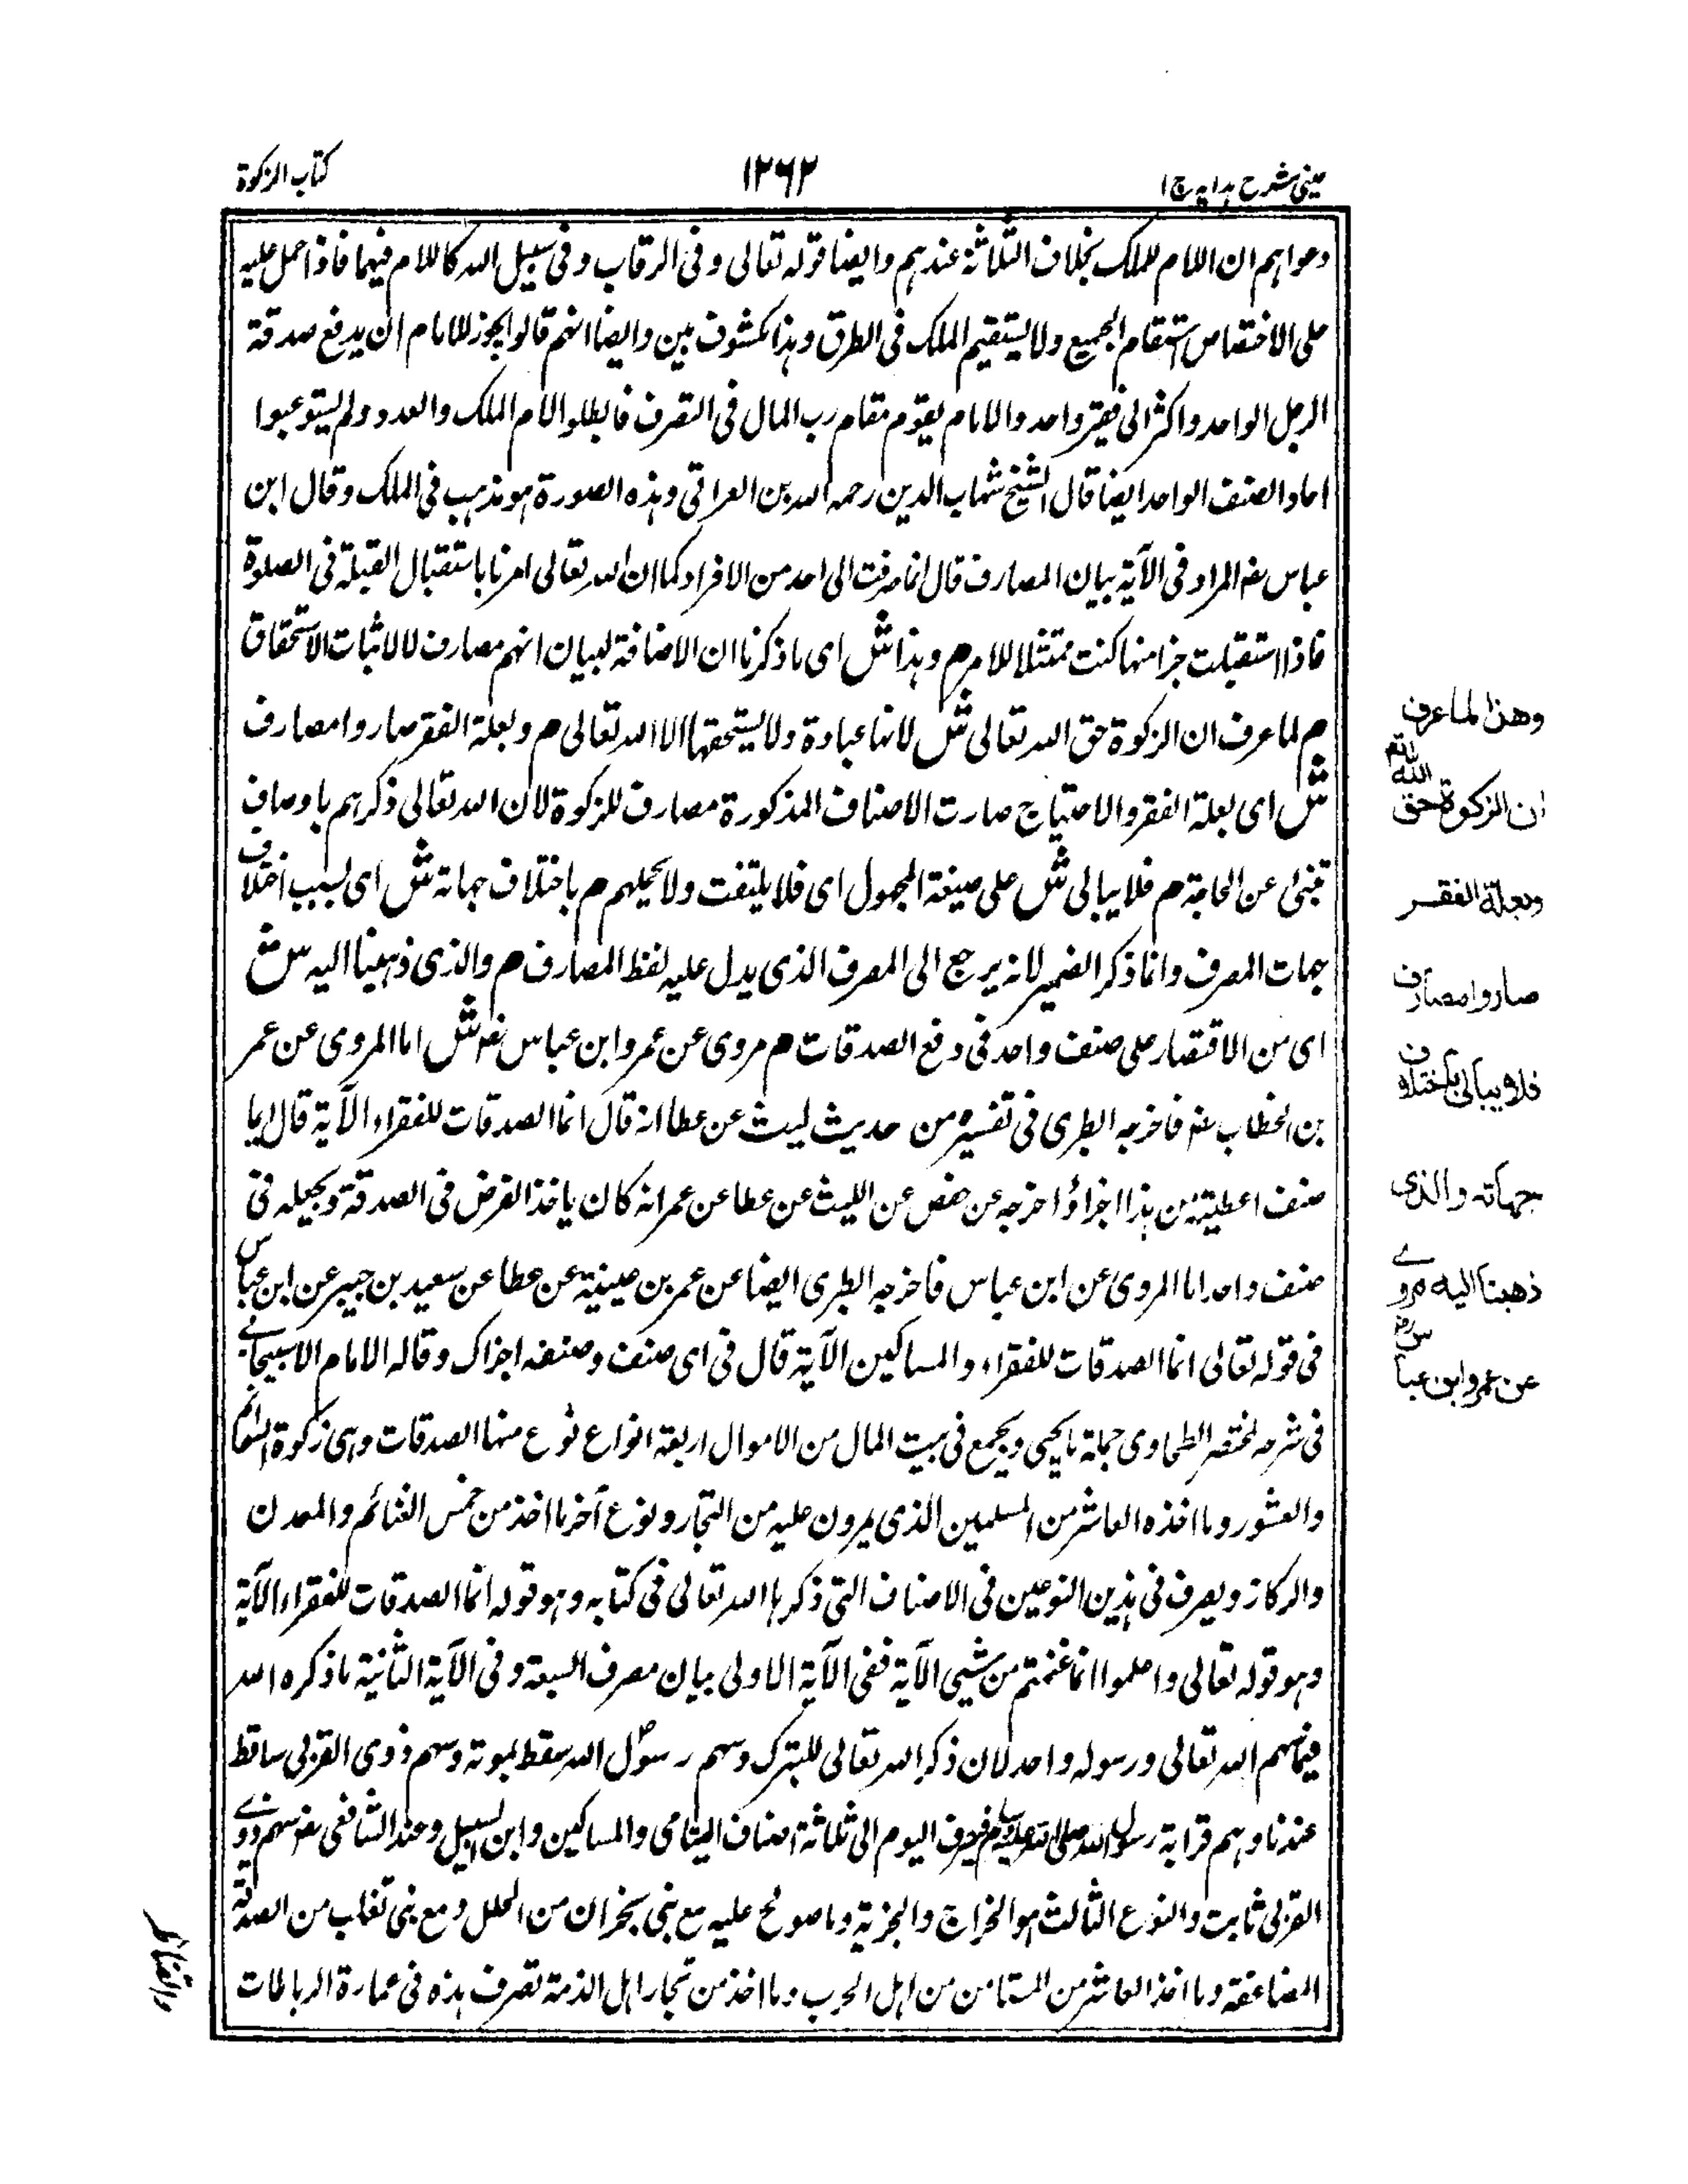 عینی شرح ہدایہ ج ۱
۱۲۶۲
کتاب الزکوۃ
دعواہم ان اللام للملک بخلاف الثلاثۃ عندہم وایضا قولہ تعالی وفی الرقاب وفی سبیل اللہ کاللام فیہا فاذا حمل علیہ
علی الاختصاص استقام الجمیع ولا یستقیم الملک فی الطرق وہذا مکشوف بین وایضا انہم قالوا یجوز للامام ان یدفع صدقۃ
الرجل الواحد واکثر الی فقیر واحد والامام یقوم مقام رب المال فی التصرف فابطلوا لام الملک والعدد ولم یستوعبوا
احاد الصنف الواحد ایضا قال الشیخ شہاب الدین رحمہ اللہ بن العراقی وہذہ الصورۃ ہو مذہب فی الملک وقال ابن
عباس رضہ المراد فی الآیۃ بیان المصارف قال انما صرفت الی احد من الافراد کما ان اللہ تعالی امرنا باستقبال القبلۃ فی الصلوۃ
فاذا استقبلت جزا منہا کنت ممتثلا للامر م وہذا ش ای ما ذکرنا ان الاضافۃ لبیان انہم مصارف لا لاثبات الاستحقاق
م لما عرف ان الزکوۃ حق اللہ تعالی ش لانہا عبادۃ ولا یستحقہا الا اللہ تعالی م وبعلۃ الفقر صاروا مصارف
ش ای بعلۃ الفقر والاحتیاج صارت الاصناف المذکورۃ مصارف للزکوۃ لان اللہ تعالی ذکرہم باوصاف
تنبئ عن الحاجۃ م فلا یبالی ش علی صیغۃ المجہول ای فلا یلتفت ولا م باختلاف جہاتہ ش ای بسبب اختلاف
جہات المصرف وانما ذکر الضمیر لانہ یرجع الی المصرف الذی یدل علیہ لفظ المصارف م والذی ذہبنا الیہ ش
ای من الاقتصار علی صنف واحد فی دفع الصدقات م مروی عن عمر وابن عباس رضہ ش اما المروی عن عمر
بن الخطاب رضہ فاخرجہ الطبری فی تفسیرہ من حدیث لیث عن عطا انہ قال انما الصدقات للفقراء الآیۃ قال ایما
صنف اعطیتہ من ہذا اجزاؤ اخرجہ عن حفص عن اللیث عن عطا عن عمر انہ کان یاخذ الفرض فی الصدقۃ ویجعلہ فی
صنف واحد اما المروی عن ابن عباس فاخرجہ الطبری ایضا عن عمر بن عیینیۃ عن عطا عن سعید بن جبیر عن ابن عباس
فی قولہ تعالی انما الصدقات للفقراء والمساکین الآیۃ قال فی ای صنف وضعتہ اجزاک وقالہ الامام الاسبیجابی
فی شرحہ لمختصر الطحاوی جملۃ ما یجبی ویجمع فی بیت المال من الاموال اربعۃ انواع نوع منہا الصدقات وہی زکوۃ السوائم
والعشور وما اخذہ العاشر من المسلمین الذی یمرون علیہ من التجار ونوع آخر ما اخذ من خمس الغنائم والمعدن
والرکاز ویصرف فی ہذین النوعین فی الاصناف التی ذکرہا اللہ تعالی فی کتابہ وہو قولہ انما الصدقات للفقراء الآیۃ
وہو قولہ تعالی واعلموا انما غنمتم من شیی الآیۃ ففی الآیۃ الاولی بیان مصرف السبعۃ وفی الآیۃ الثانیۃ ما ذکرہ اللہ
فیہا سہم اللہ تعالی ورسولہ واحد لان ذکر اللہ تعالی للتبرک وسہم رسول اللہ سقط بموتہ وسہم ذوی القربی ساقط
عندنا وہم قرابۃ رسول اللہ صلی اللہ علیہ وسلم فیصرف الیوم الی ثلاثۃ اصناف الیتامی والمساکین وابن السبیل وعند الشافعی رضہ سہم ذوی
القربی ثابت والنوع الثالث ہو الخراج والجزیۃ وما صولح علیہ مع بنی نجران من الحلل ومع بنی تغلب من الصدقۃ
المضاعفۃ وما اخذ العاشر من المستامن من اہل الحرب وما اخذ من تجار اہل الذمۃ تصرف ہذہ فی عمارۃ الرباطات
وهذا لما عرف
ان الزکوة حق الله
وبعلة الفقر
صاروا مصارف
فلا یبالی باختلاف
جهاته والذی
ذهبنا الیه مروی
عن عمر وابن عباس رض
والقناطر